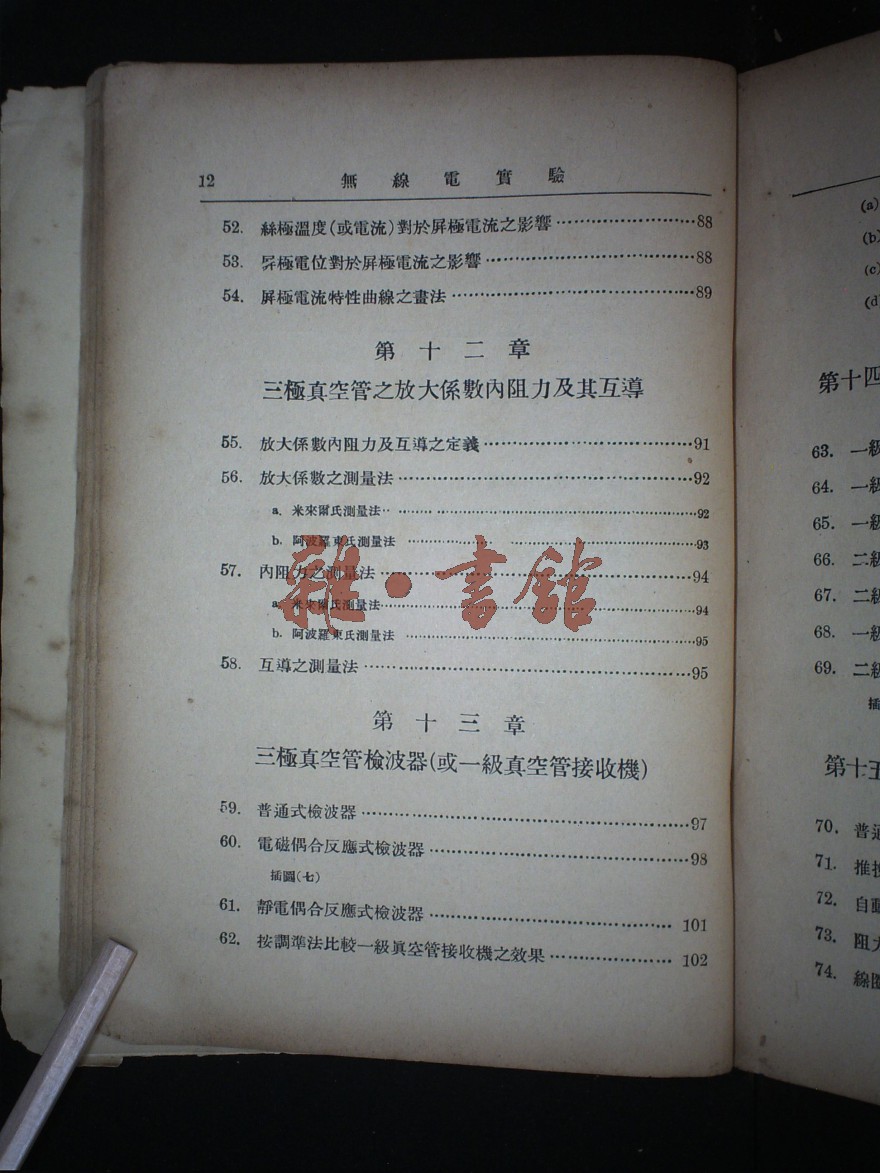 12 無線電實驗
52. 絲極溫度(或電流)對於屏極電流之影響 88
53. 屏極電位對於屏極電流之影響 88
54. 屏極電流特性曲線之畫法 89
第十二章
三極真空管之放大係數內阻力及其互導
55. 放大係數內阻力及互導之定義 91
56. 放大係數之測量法 92
a. 米來爾氏測量法 92
b. 阿波羅東氏測量法 93
57. 內阻力之測量法 94
a. 米來爾氏測量法 94
b. 阿波羅東氏測量法 95
58. 互導之測量法 95
第十三章
三極真空管檢波器(或一級真空管接收機)
59. 普通式檢波器 97
60. 電磁偶合反應式檢波器 98
插圖(七)
61. 靜電偶合反應式檢波器 101
62. 按調準法比較一級眞空管接收機之效果 102
雜·書館
(a)
(b)
(c)
(d
第十四
63. 一級
64. 一級
65. 一級
66. 二級
67. 二級
68. 一級
69. 二級
插
第十五
70. 普通
71. 推挽
72. 自動
73. 阻力
74. 線圈